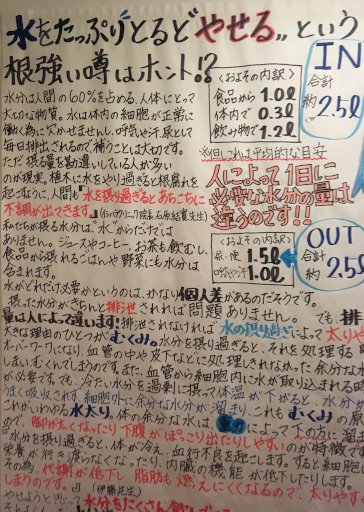 水をたっぷりとるとやせる,,という
根強い噂はホント!?
水分は人間の60%を占める、人体にとって
大切な物質。水は体内の細胞が正常に
働く為に欠かせませんし、呼気や汗、尿として
毎日排出されるので補うことは大切です。
ただ摂る量を勘違いしている人が多い
のが現実。植木に水をやり過ぎると根腐れを
起こすように、人間も『水を摂り過ぎるとあちこちに
不調が出てきます。』
私たちが摂る水分は、"水からだけ"では
ありません。ジュースやコーヒー、お茶も飲むし、
食品から摂れるごはんや野菜にも水分は
含まれます。
<およその内訳>
食品から 1.0ℓ
体内で 0.3ℓ
飲み物で 1.2ℓ
IN
合計
約2.5ℓ
※但しこれは平均的な目安
人によって1日に
必要な水分の量は
違うのです!!
<およその内訳>
尿・便 1.5ℓ
呼吸や汗 1.0ℓ
OUT
合計
約2.5ℓ
水がどれだけ必要かというのは、かなり個人差があるのだそうです。
摂った水分がきちんと排泄されれば問題ありません。でも排
量は人によって違います!排泄されなければ水の摂り過ぎによって太りや
大きな理由のひとつがむくみ。水分を摂り過ぎると、それを処理する腎
オーバーワークになり、血管の中や皮下などに処理しきれなかった余分な水
しまいむくんでしまうのです。また、血管から細胞内に水が取り込まれる時
が必要です。でも、冷たい水分を過剰に摂って体温が下がると、水分が
うまく吸収されず、細胞外に余分な水分が溜まり、これもむくみの原
これがいわゆる水太り。体の余分な水は、重力によって下の方に溜
ので、脚が太くなったり下腹がぽっこり出たりしやすいのが特徴で
水分を摂り過ぎると、体が冷え、血行不良を起こします。すると細胞に
栄養が行き渡らなくなったり、内臓の機能が低下したりします。
その為、代謝が低下し脂肪も燃えにくくなるので、太りやす
しまうのです。』(伊藤先生)